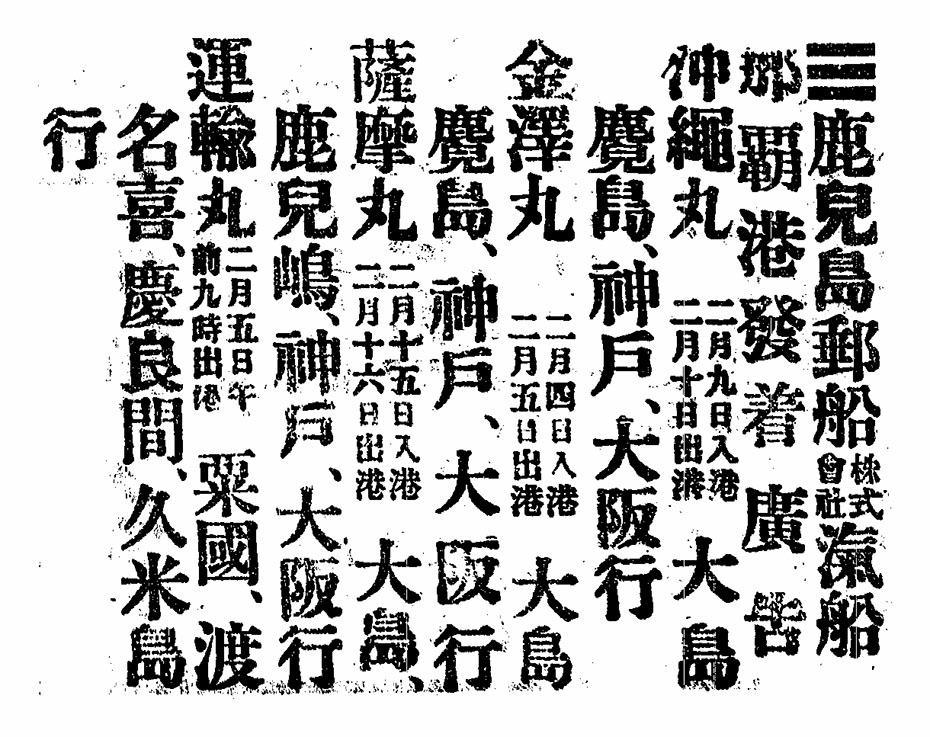 三鹿兒島郵船株式會社滊船
那覇港發着廣告
沖繩丸二月九日入港二月十日出港大島
麑島、神戶、大阪行
金澤丸二月四日入港二月五日出港大島
麑島、神戶、大阪行
薩摩丸二月十五日入港二月十六日出港大島、
鹿兒嶋、神戶、大阪行
運輸丸二月五日午前九時出港粟國、渡
名喜、慶良間、久米島
行